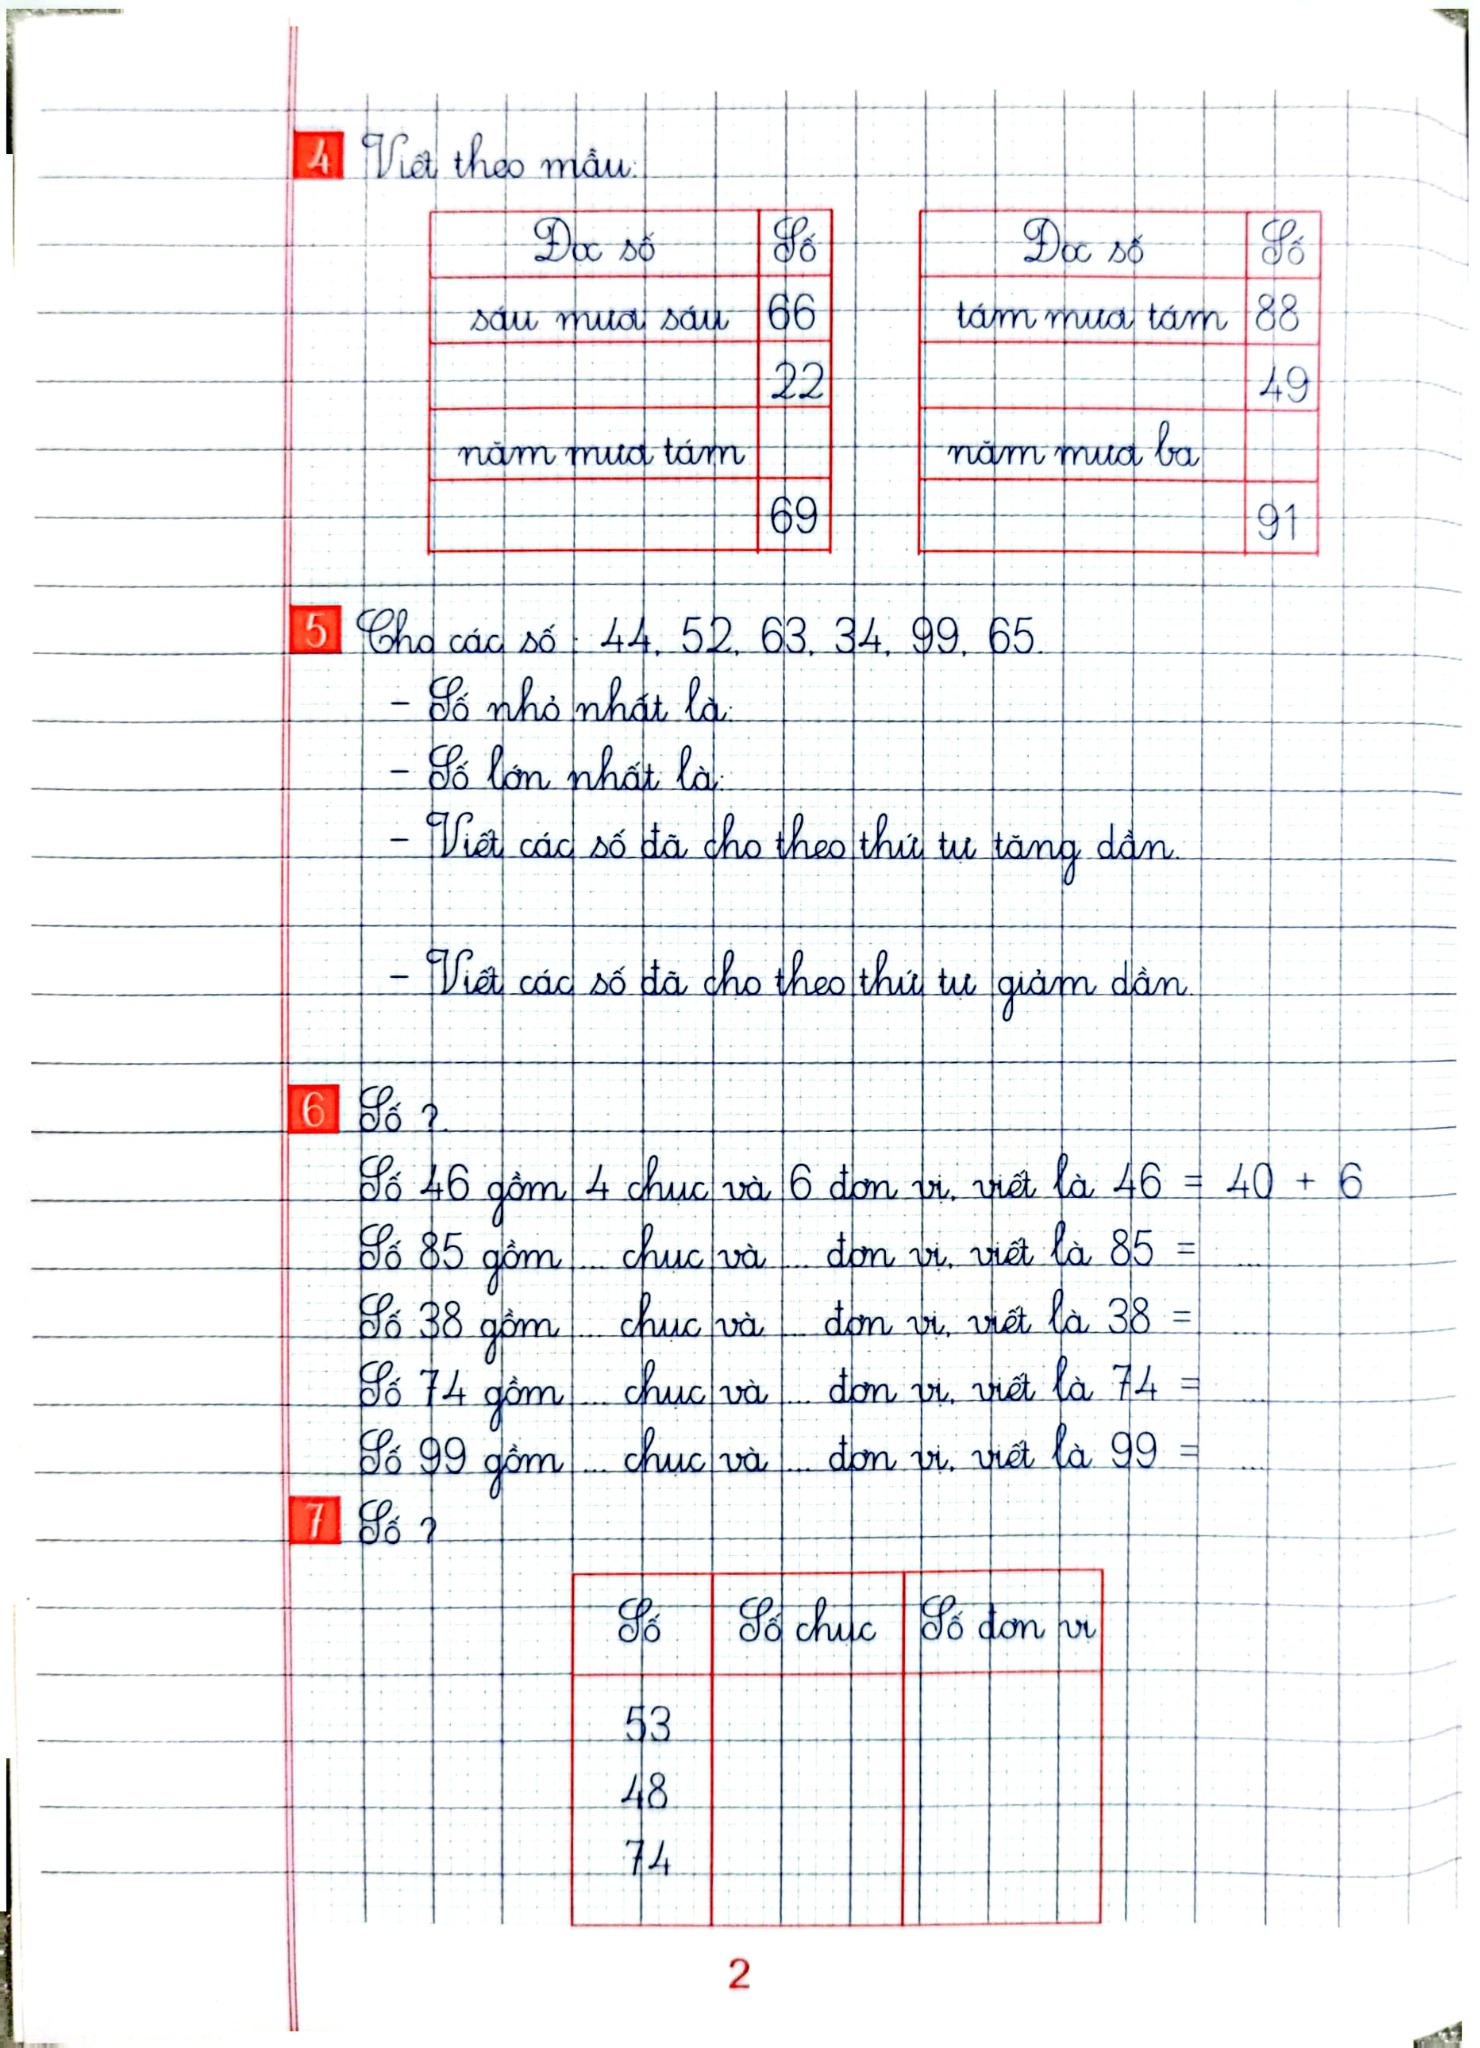 4 Viết theo mẫu:
Đọc số Số Đọc số Số
sáu mươi sáu 66 tám mươi tám 88
22 49
năm mươi tám năm mươi ba
69 91
5 Cho các số : 44, 52, 63, 34, 99, 65.
- Số nhỏ nhất là:
- Số lớn nhất là:
- Viết các số đã cho theo thứ tự tăng dần.
- Viết các số đã cho theo thứ tự giảm dần.
6 Số ?
Số 46 gồm 4 chục và 6 đơn vị, viết là 46 = 40 + 6
Số 85 gồm ... chục và ... đơn vị, viết là 85 = ...
Số 38 gồm ... chục và ... đơn vị, viết là 38 = ...
Số 74 gồm ... chục và ... đơn vị, viết là 74 = ...
Số 99 gồm ... chục và ... đơn vị, viết là 99 = ...
7 Số ?
Số Số chục Số đơn vị
53
48
74
2